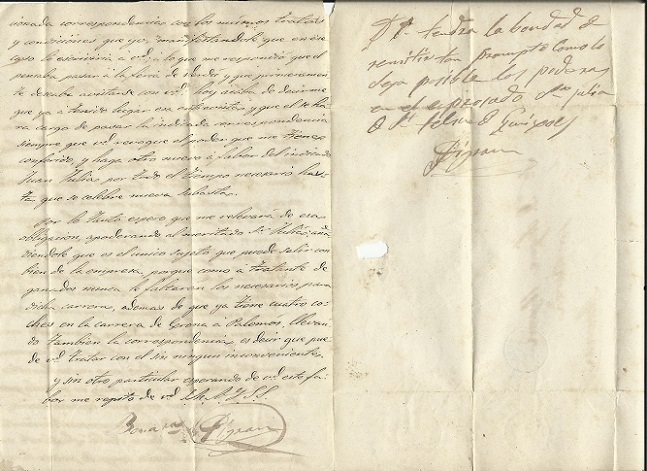 cionada correspondencia con los mismos tratos
y condiciones que yo, manifestandole que en ese
caso le escriviria á vd; a lo que me respondió que el
pensaba pasar á la feria de Verdú y que primeramen
te deseaba avistarse con vd; hoy acaba de decirme
que ya á tenido lugar esa entrevista y que el se ha
ra cargo de pasar la indicada correspondencia
siempre que vd revoque el poder que me tiene
conferido y haga otro nuevo á fabor del indicado
Juan Juliá por todo el tiempo necesario has-
ta que se celebre nueva subasta.
Por lo tanto espero que me relevará de esa
obligacion, apoderando al meritado Sr Juliá; aña
diendole que es el unico sujeto que puede salir con
bien de la empresa, porque como á tratante de
ganados nunca le faltaran los necesarios para
dicha carrera, ademas de que ya tiene cuatro co-
ches en la carrera de Gerona á Palamós, llevan
do tambien la correspondencia, es decir que pue
de vd tratar con el sin ningun inconveniente.
y sin otro particular esperando de vd este fa-
bor me repito de vd S.S.
D P. tendra la bondad de
remitir tan prompto como le
sea posible los poderes
en el espresado Sr Julia
á Sn Feliu de Guixols